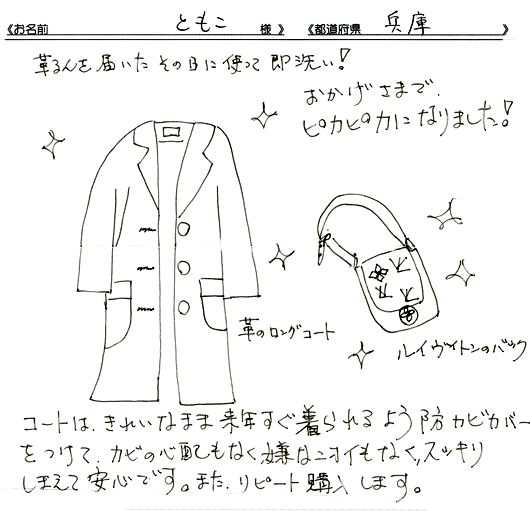 《お名前 ともこ 様 》 《都道府県 兵庫 》
革るんを届いたその日に使って即洗い!
おかげさまで、
ピカピカになりました!
革のロングコート
ルイヴィトンのバック
コートは、きれいなまま来年すぐ着られるよう防カビカバー
をつけて、カビの心配もなく嫌なニオイもなく、スッキリ
しまえて安心です。また、リピート購入します。